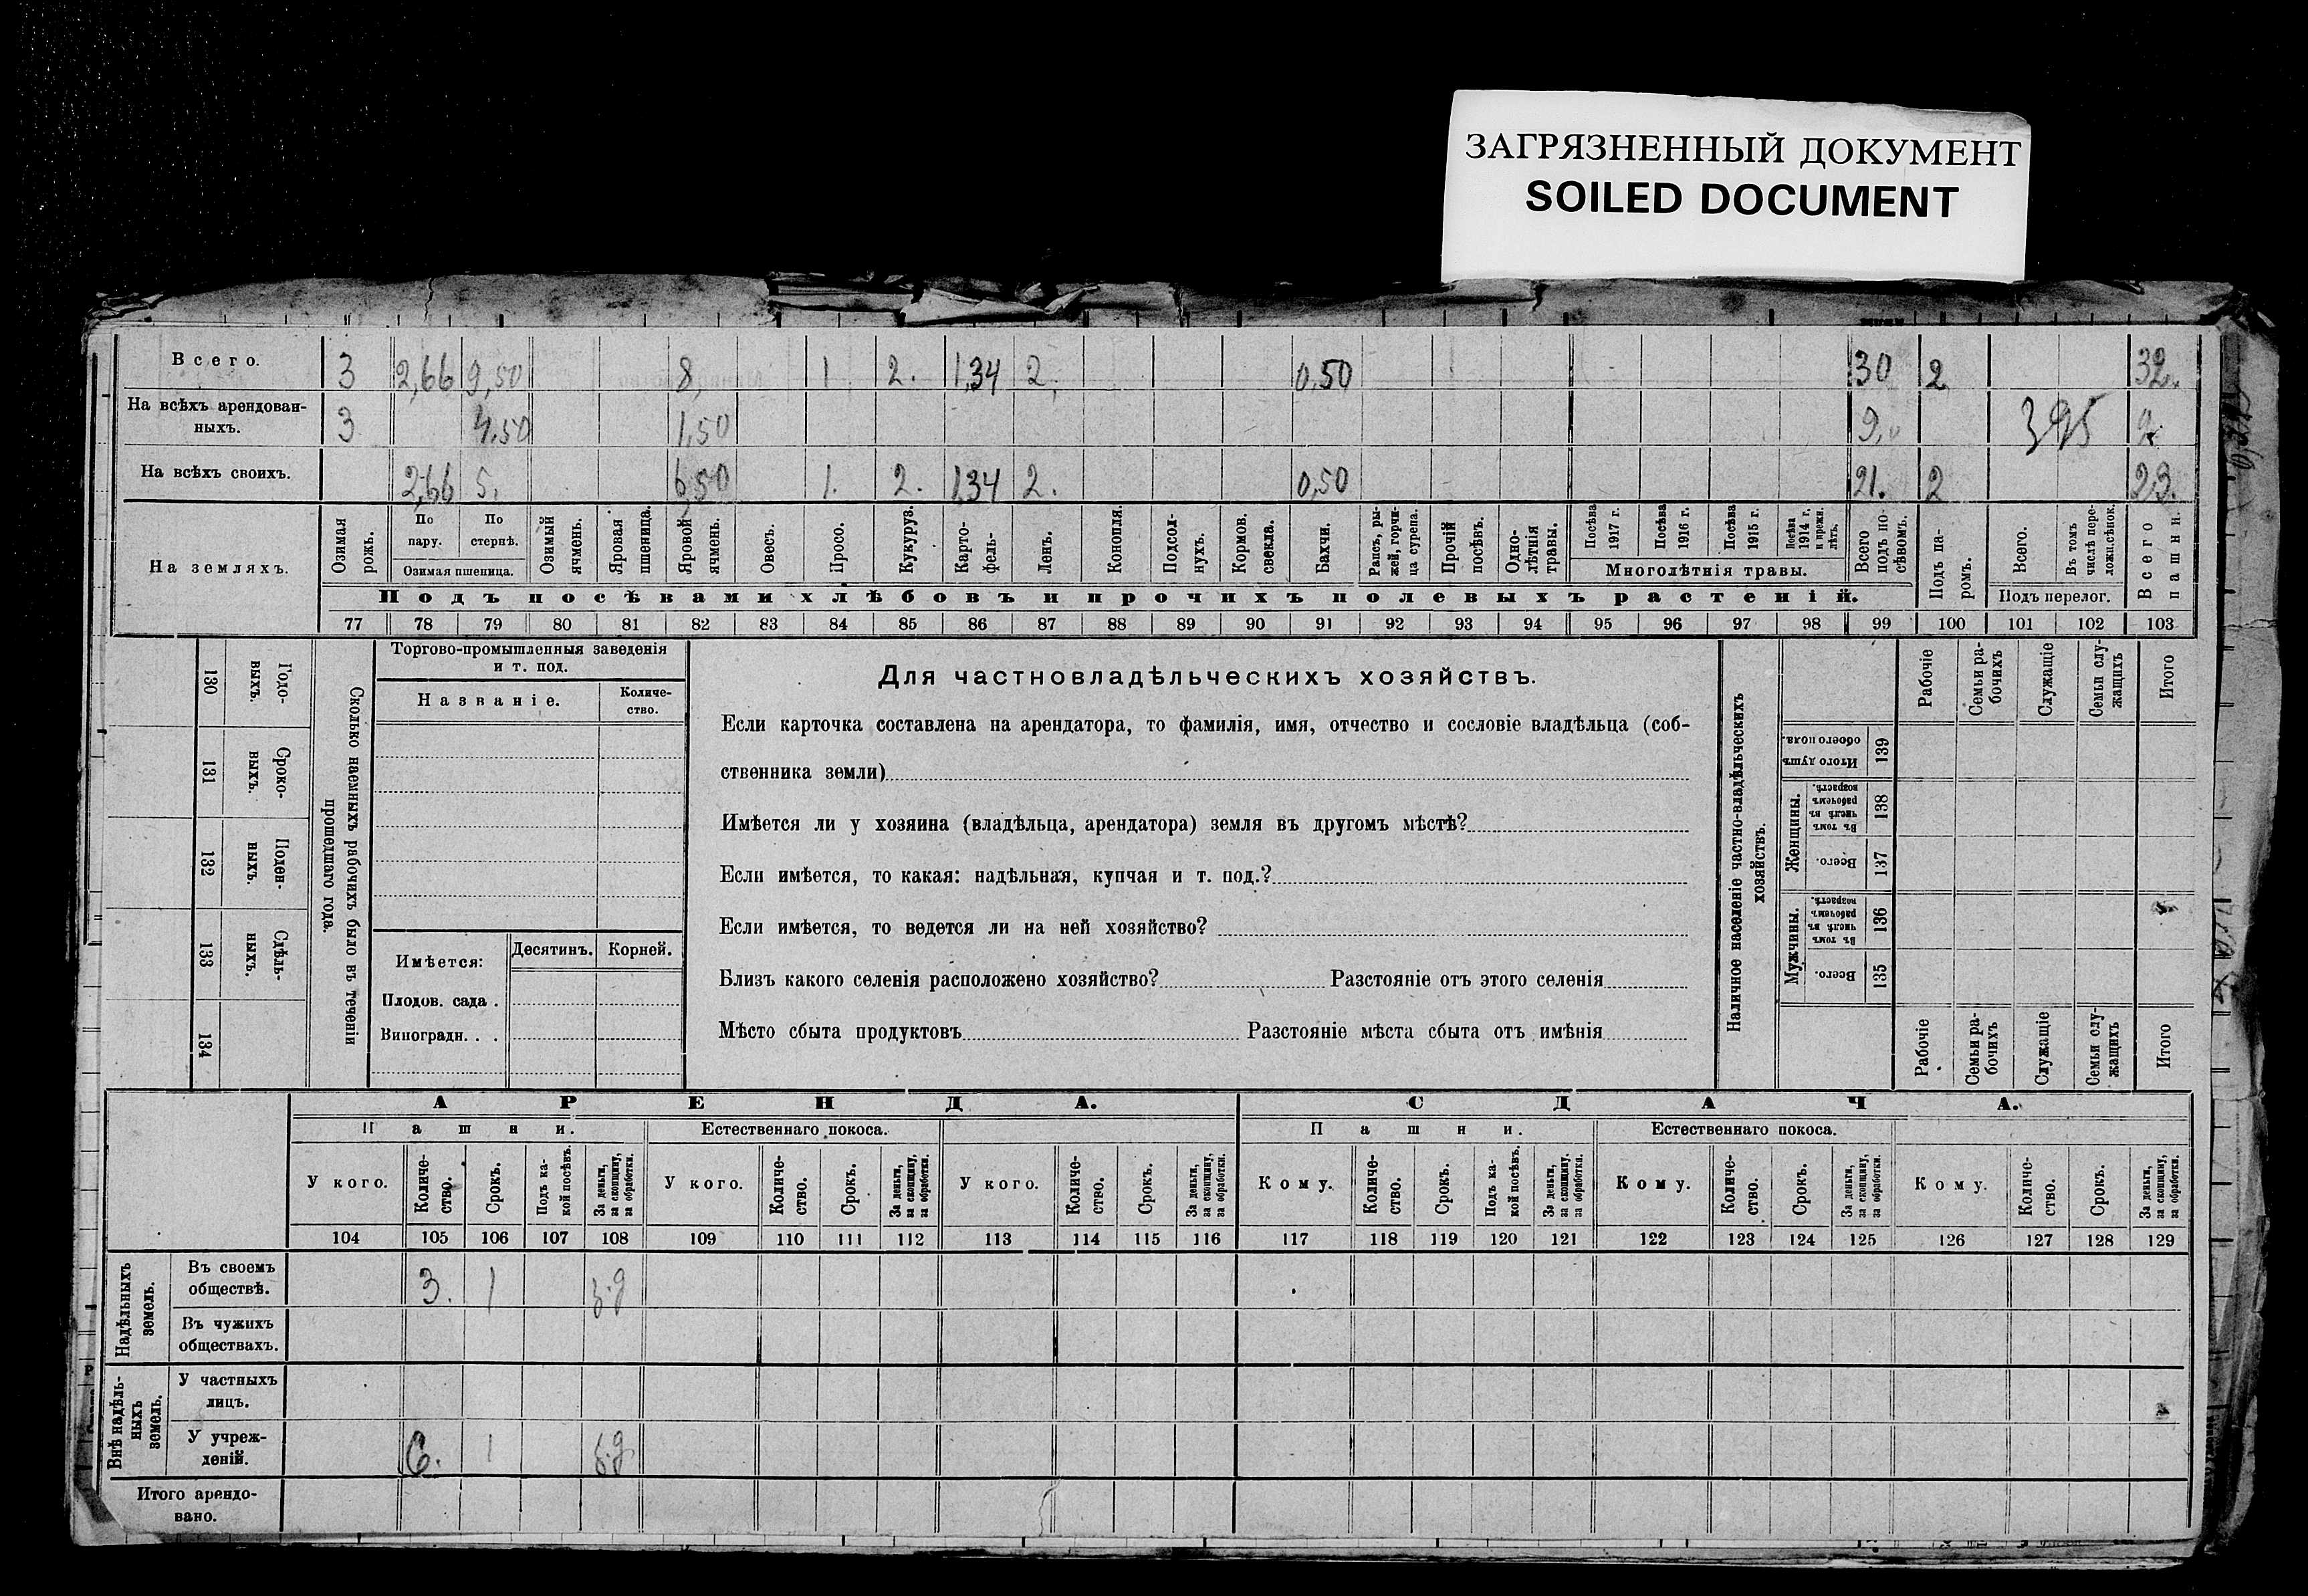 ЗАГРЯЗНЕННЫЙ ДОКУМЕНТ
SOILED DOCUMENT
Всего. 3 2,66 9,50 8, 1. 2. 1,34 2, 0,50 30 2 32
На всѣхъ арендован-
ныхъ. 3 4,50 1,50 9, 395 9
На всѣхъ своихъ. 2,66 5, 6,50 1. 2. 1,34 2. 0,50 21. 2 23.
На земляхъ.
Озимая рожь.
По пару.
По стернѣ.
Озимая пшеница.
Озимый ячмень.
Яровая пшеница.
Яровой ячмень.
Овесъ.
Просо.
Кукуруз.
Карто-
фель-
Ленъ.
Конопля.
Подсол-
нухъ.
Кормов. свекла.
Бахчи.
Рапсъ, ры-
жей, горчи-
ца сурепа.
Прочій посѣвъ.
Одно-
лѣтнія травы.
Посѣва 1917 г.
Посѣва 1916 г.
Посѣва 1915 г.
Посѣва 1914 г. и прежн. лѣтъ.
Многолѣтнія травы.
Всего подъ по-
сѣвомъ.
Подъ па-
ромъ.
Всего.
Въ томъ числѣ пере-
ложн.сѣнок.
Подъ перелог.
Всего пашни.
Подъ посѣвами хлѣбовъ и прочихъ полевыхъ растеній.
77 78 79 80 81 82 83 84 85 86 87 88 89 90 91 92 93 94 95 96 97 98 99 100 101 102 103
130 Годо-
выхъ.
131 Сроко-
ныхъ.
132 Поден-
ныхъ.
133 Сдѣль-
ныхъ.
134
Сколько наемныхъ рабочихъ было въ теченіи
прошедшаго года.
Торгово-промышленныя заведенія
и т. под.
Названіе.
Количе-
ство.
Имѣется:
Десятинъ. Корней.
Плодов. сада .
Виноградн. . .
Для частновладѣльческихъ хозяйствъ.
Если карточка составлена на арендатора, то фамилія, имя, отчество и сословіе владѣльца (соб-
ственника земли)
Имѣется ли у хозяина (владѣльца, арендатора) земля въ другомъ мѣстѣ?
Если имѣется, то какая: надѣльная, купчая и т. под.?
Если имѣется, то ведется ли на ней хозяйство?
Близъ какого селенія расположено хозяйство? Разстояніе отъ этого селенія
Мѣсто сбыта продуктовъ Разстояніе мѣста сбыта отъ имѣнія
Наличное населеніе частно-владѣльческихъ
хозяйствъ.
Рабочіе
Семьи ра-
бочихъ
Служащіе
Семьи слу-
жащихъ
Итого
Итого душъ обоего пола. 139
Женщины.
Въ томъ числѣ въ рабочемъ возрастѣ. 138
Всего. 137
Мужчины.
Въ томъ числѣ въ рабочемъ возрастѣ. 136
Всего. 135
Рабочіе
Семьи ра-
бочихъ
Служащіе
Семьи слу-
жащихъ
Итого
АРЕНДА. СДАЧА.
Пашни. Естественнаго покоса. Пашни. Естественнаго покоса.
У кого.
Количе-
ство.
Срокъ.
Подъ ка-
кой посѣвъ.
За деньги, за скопщину, за обработки.
У кого.
Количе-
ство.
Срокъ.
За деньги, за скопщину, за обработки.
У кого.
Количе-
ство.
Срокъ.
За деньги, за скопщину, за обработки.
Кому.
Количе-
ство.
Срокъ.
Подъ ка-
кой посѣвъ.
За деньги, за скопщину, за обработки.
Кому.
Количе-
ство.
Срокъ.
За деньги, за скопщину, за обработки.
Кому.
Количе-
ство.
Срокъ.
За деньги, за скопщину, за обработки.
104 105 106 107 108 109 110 111 112 113 114 115 116 117 118 119 120 121 122 123 124 125 126 127 128 129
Надѣльныхъ
земель.
Въ своемъ
обществѣ. 3. 1 з.д
Въ чужихъ
обществахъ.
Внѣ надѣль-
ныхъ
земель.
У частныхъ
лицъ.
У учреж-
деній. 6. 1 з.д
Итого арендо-
вано.